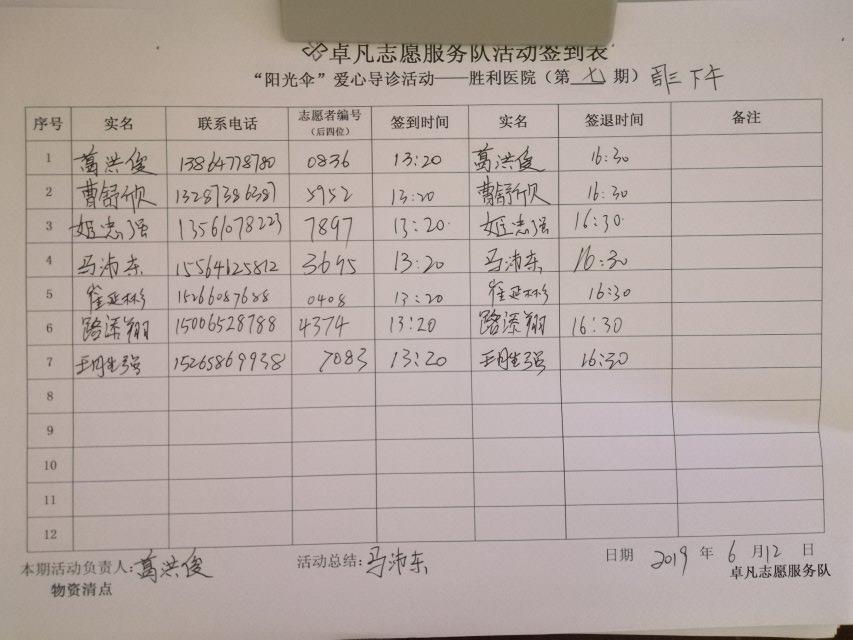 卓凡志愿服务队活动签到表
“阳光伞”爱心导诊活动——胜利医院（第 七 期） 周三下午
序号 实名 联系电话 志愿者编号（后四位） 签到时间 实名 签退时间 备注
1 葛洪俊 13864778780 0836 13:20 葛洪俊 16:30
2 曹舒欣 13287386387 5952 13:20 曹舒欣 16:30
3 姬志强 13561078223 7897 13:20 姬志强 16:30
4 马沛东 15564125812 3695 13:20 马沛东 16:30
5 崔延彬 15266087688 0408 13:20 崔延彬 16:30
6 路添翔 15006528788 4374 13:20 路添翔 16:30
7 15265869938 7083 13:20 16:30
8
9
10
11
12
本期活动负责人：葛洪俊 活动总结：马沛东 日期 2019 年 6 月 12 日
物资清点 卓凡志愿服务队